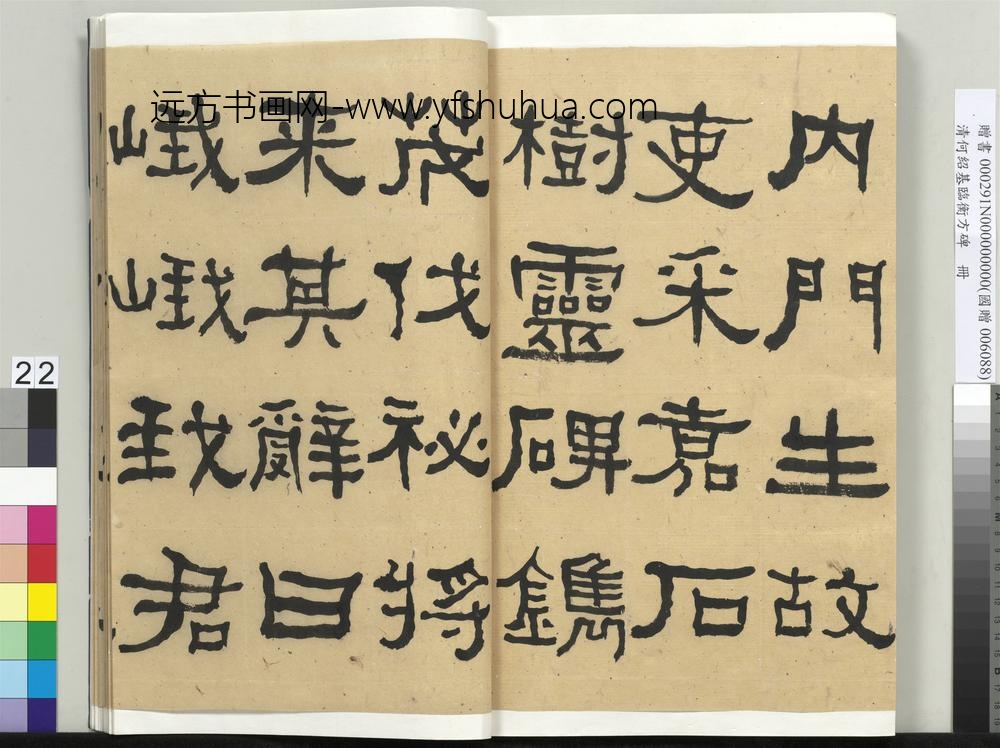 远方书画网-www.yfshuhua.com
内門生故
吏采嘉石
樹靈碑鐫
茂伐祕將
来其辭曰
峨峨我君
贈書 000291N000000000(國贈 006088)
清何紹基臨衡方碑 冊
22